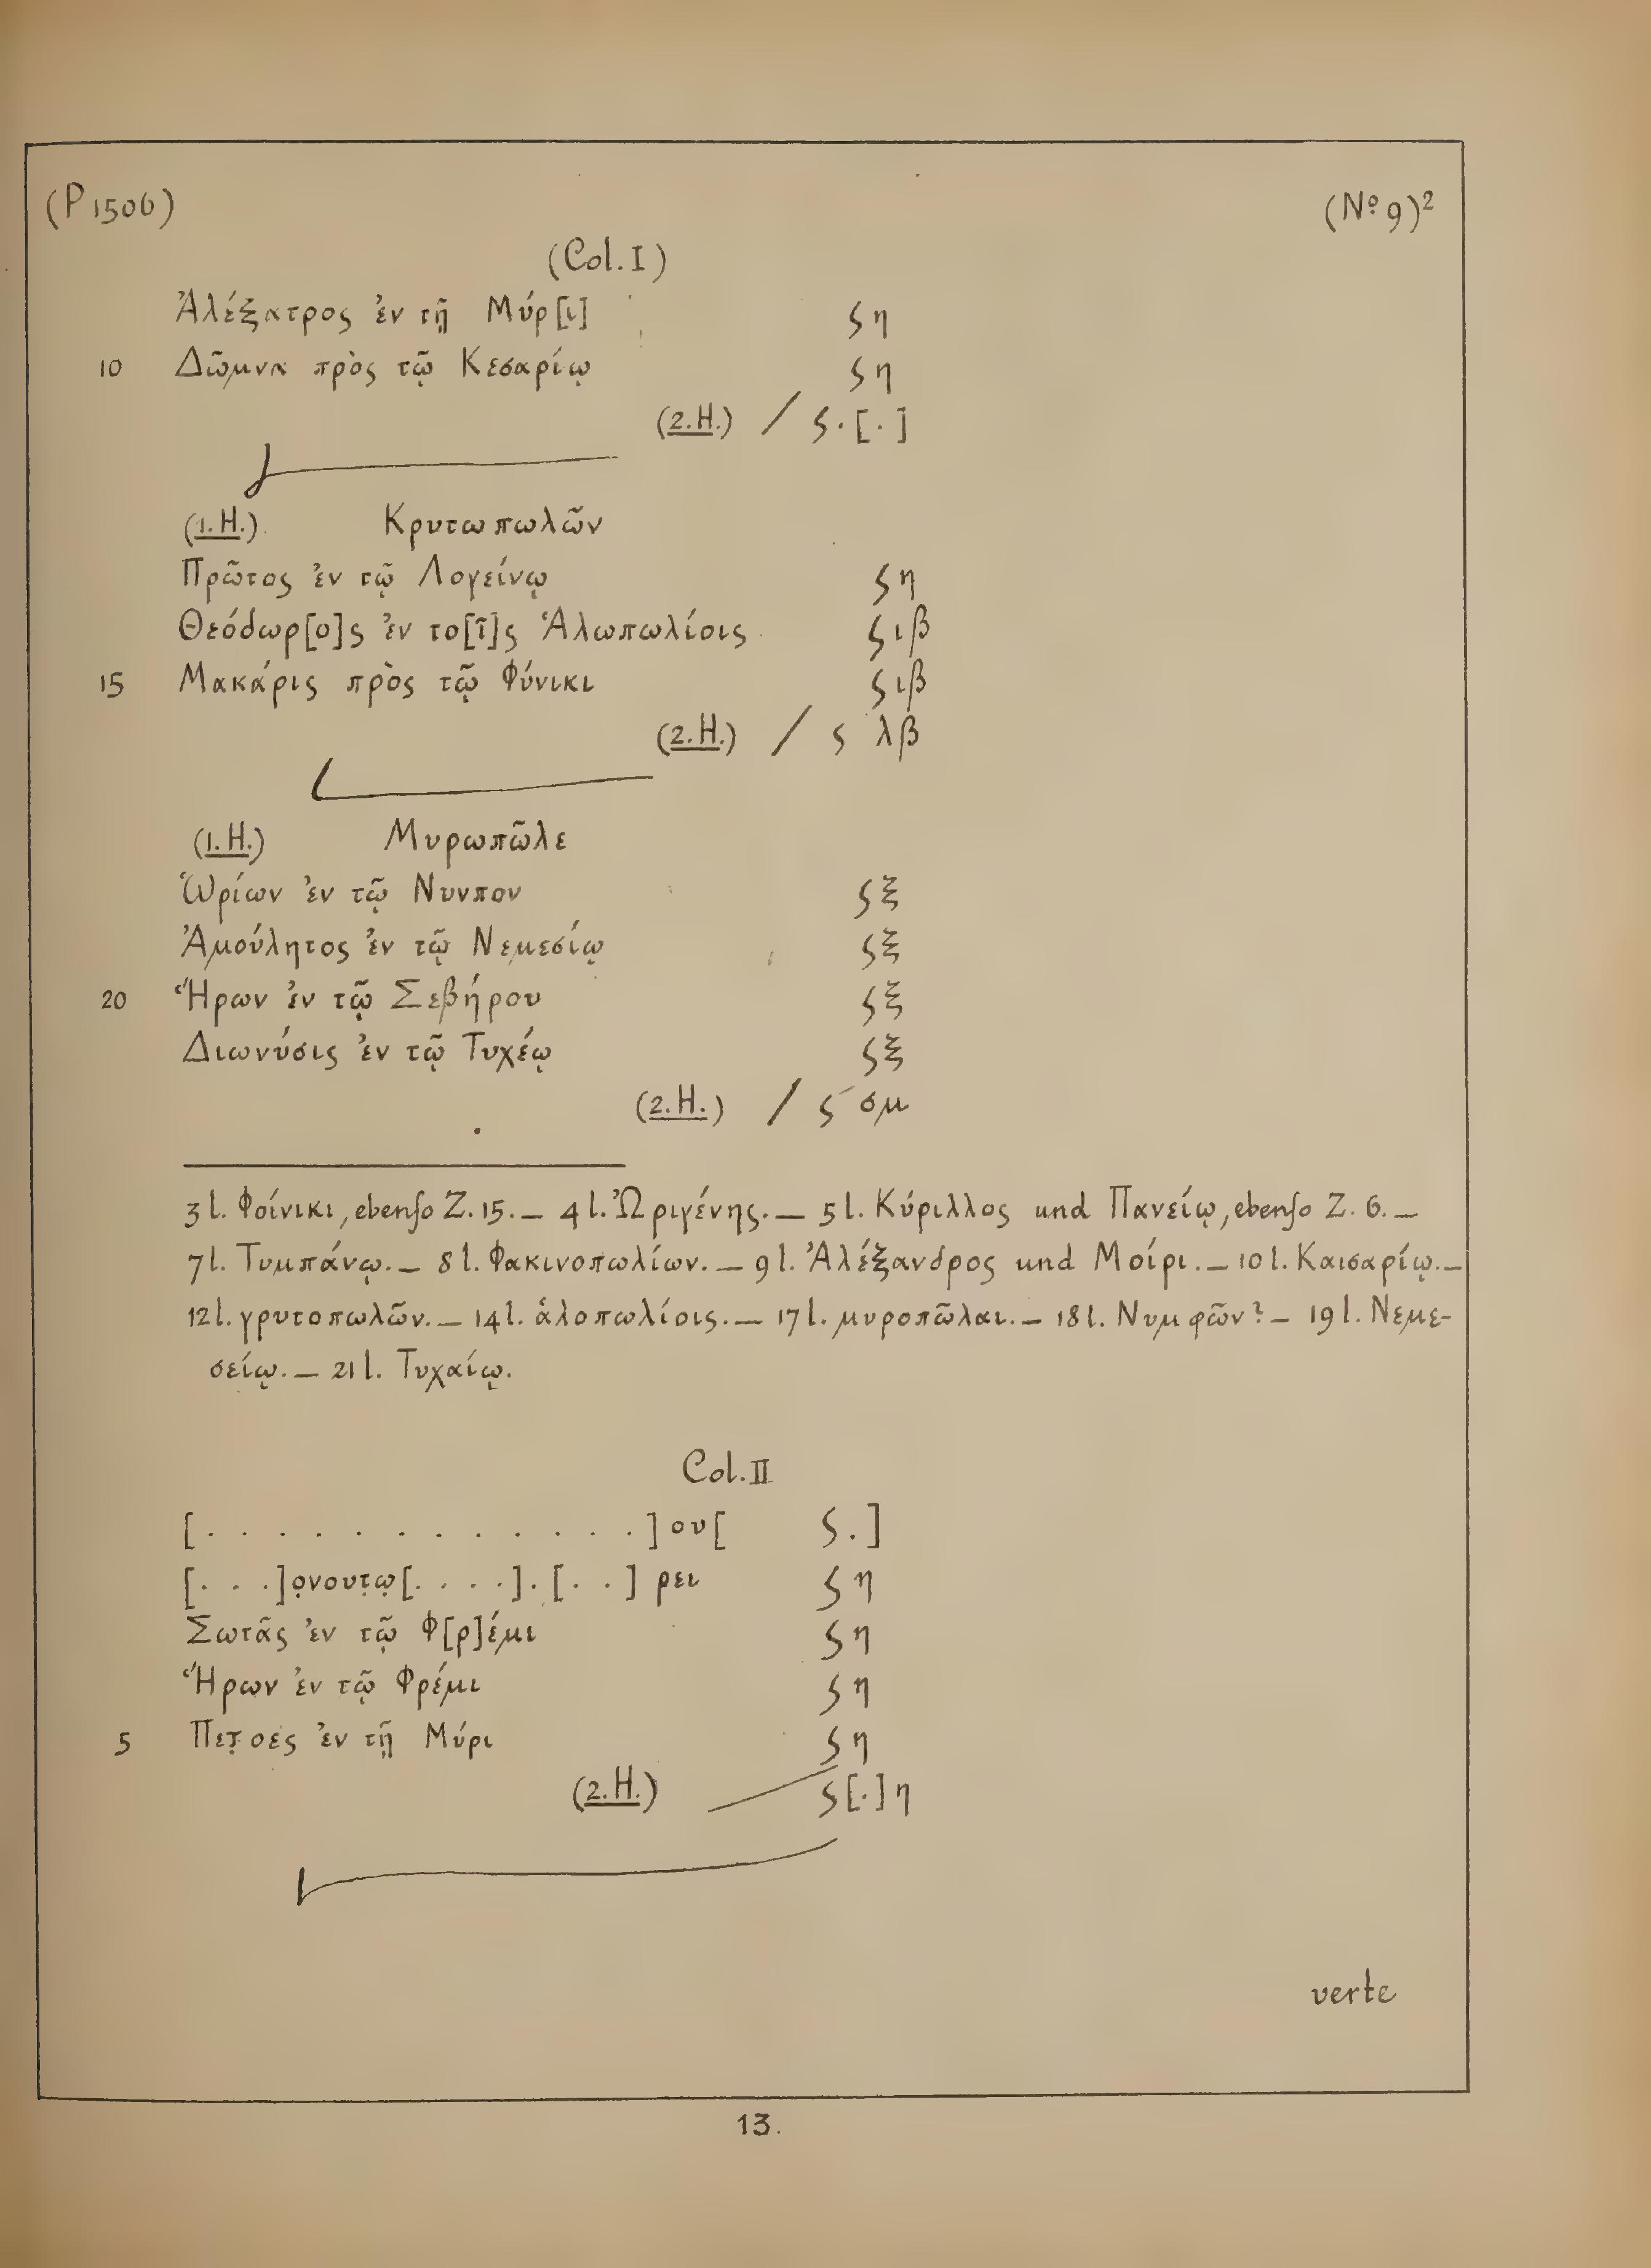 (P 1506) (Nº 9)²
(Col. I)
Ἀλέξατρος ἐν τῇ Μύρ[ι] ϛ η
10 Δῶμνα πρὸς τῷ Κεσαρίῳ ϛ η
(2. H.) / ϛ . [ . ]
(1. H.) Κρυτωπωλῶν
Πρῶτος ἐν τῷ Λογείνῳ ϛ η
Θεόδωρ[ο]ς ἐν το[ῖ]ς Ἁλωπωλίοις ϛ ιβ
15 Μακάρις πρὸς τῷ Φύνικι ϛ ιβ
(2. H.) / ϛ λβ
(1. H.) Μυρωπῶλε
Ὡρίων ἐν τῷ Νυνπον ϛ ξ
Ἀμούλητος ἐν τῷ Νεμεσίῳ ϛ ξ
20 Ἥρων ἐν τῷ Σεβήρου ϛ ξ
Διωνύσις ἐν τῷ Τυχέῳ ϛ ξ
(2. H.) / ϛ σμ
3 l. Φοίνικι, ebenſo Z. 15. — 4 l. Ὠριγένης. — 5 l. Κύριλλος und Πανείῳ, ebenſo Z. 6. —
7 l. Τυμπάνῳ. — 8 l. Φακινοπωλίων. — 9 l. Ἀλέξανδρος und Μοίρι. — 10 l. Καισαρίῳ. —
12 l. γρυτοπωλῶν. — 14 l. ἁλοπωλίοις. — 17 l. μυροπῶλαι. — 18 l. Νυμφῶν? — 19 l. Νεμε-
σείῳ. — 21 l. Τυχαίῳ.
Col. II
[. . . . . . . . . . . .] ου[ ϛ . ]
[. . .]ο̣νουτ̣ῳ[. . . .] . [. .] ρει ϛ η
Σωτᾶς ἐν τῷ Φ[ρ]έμι ϛ η
Ἥρων ἐν τῷ Φρέμι ϛ η
5 Πετ̣οες ἐν τῇ Μύρι ϛ η
(2. H.) / ϛ [.] η
verte
13.